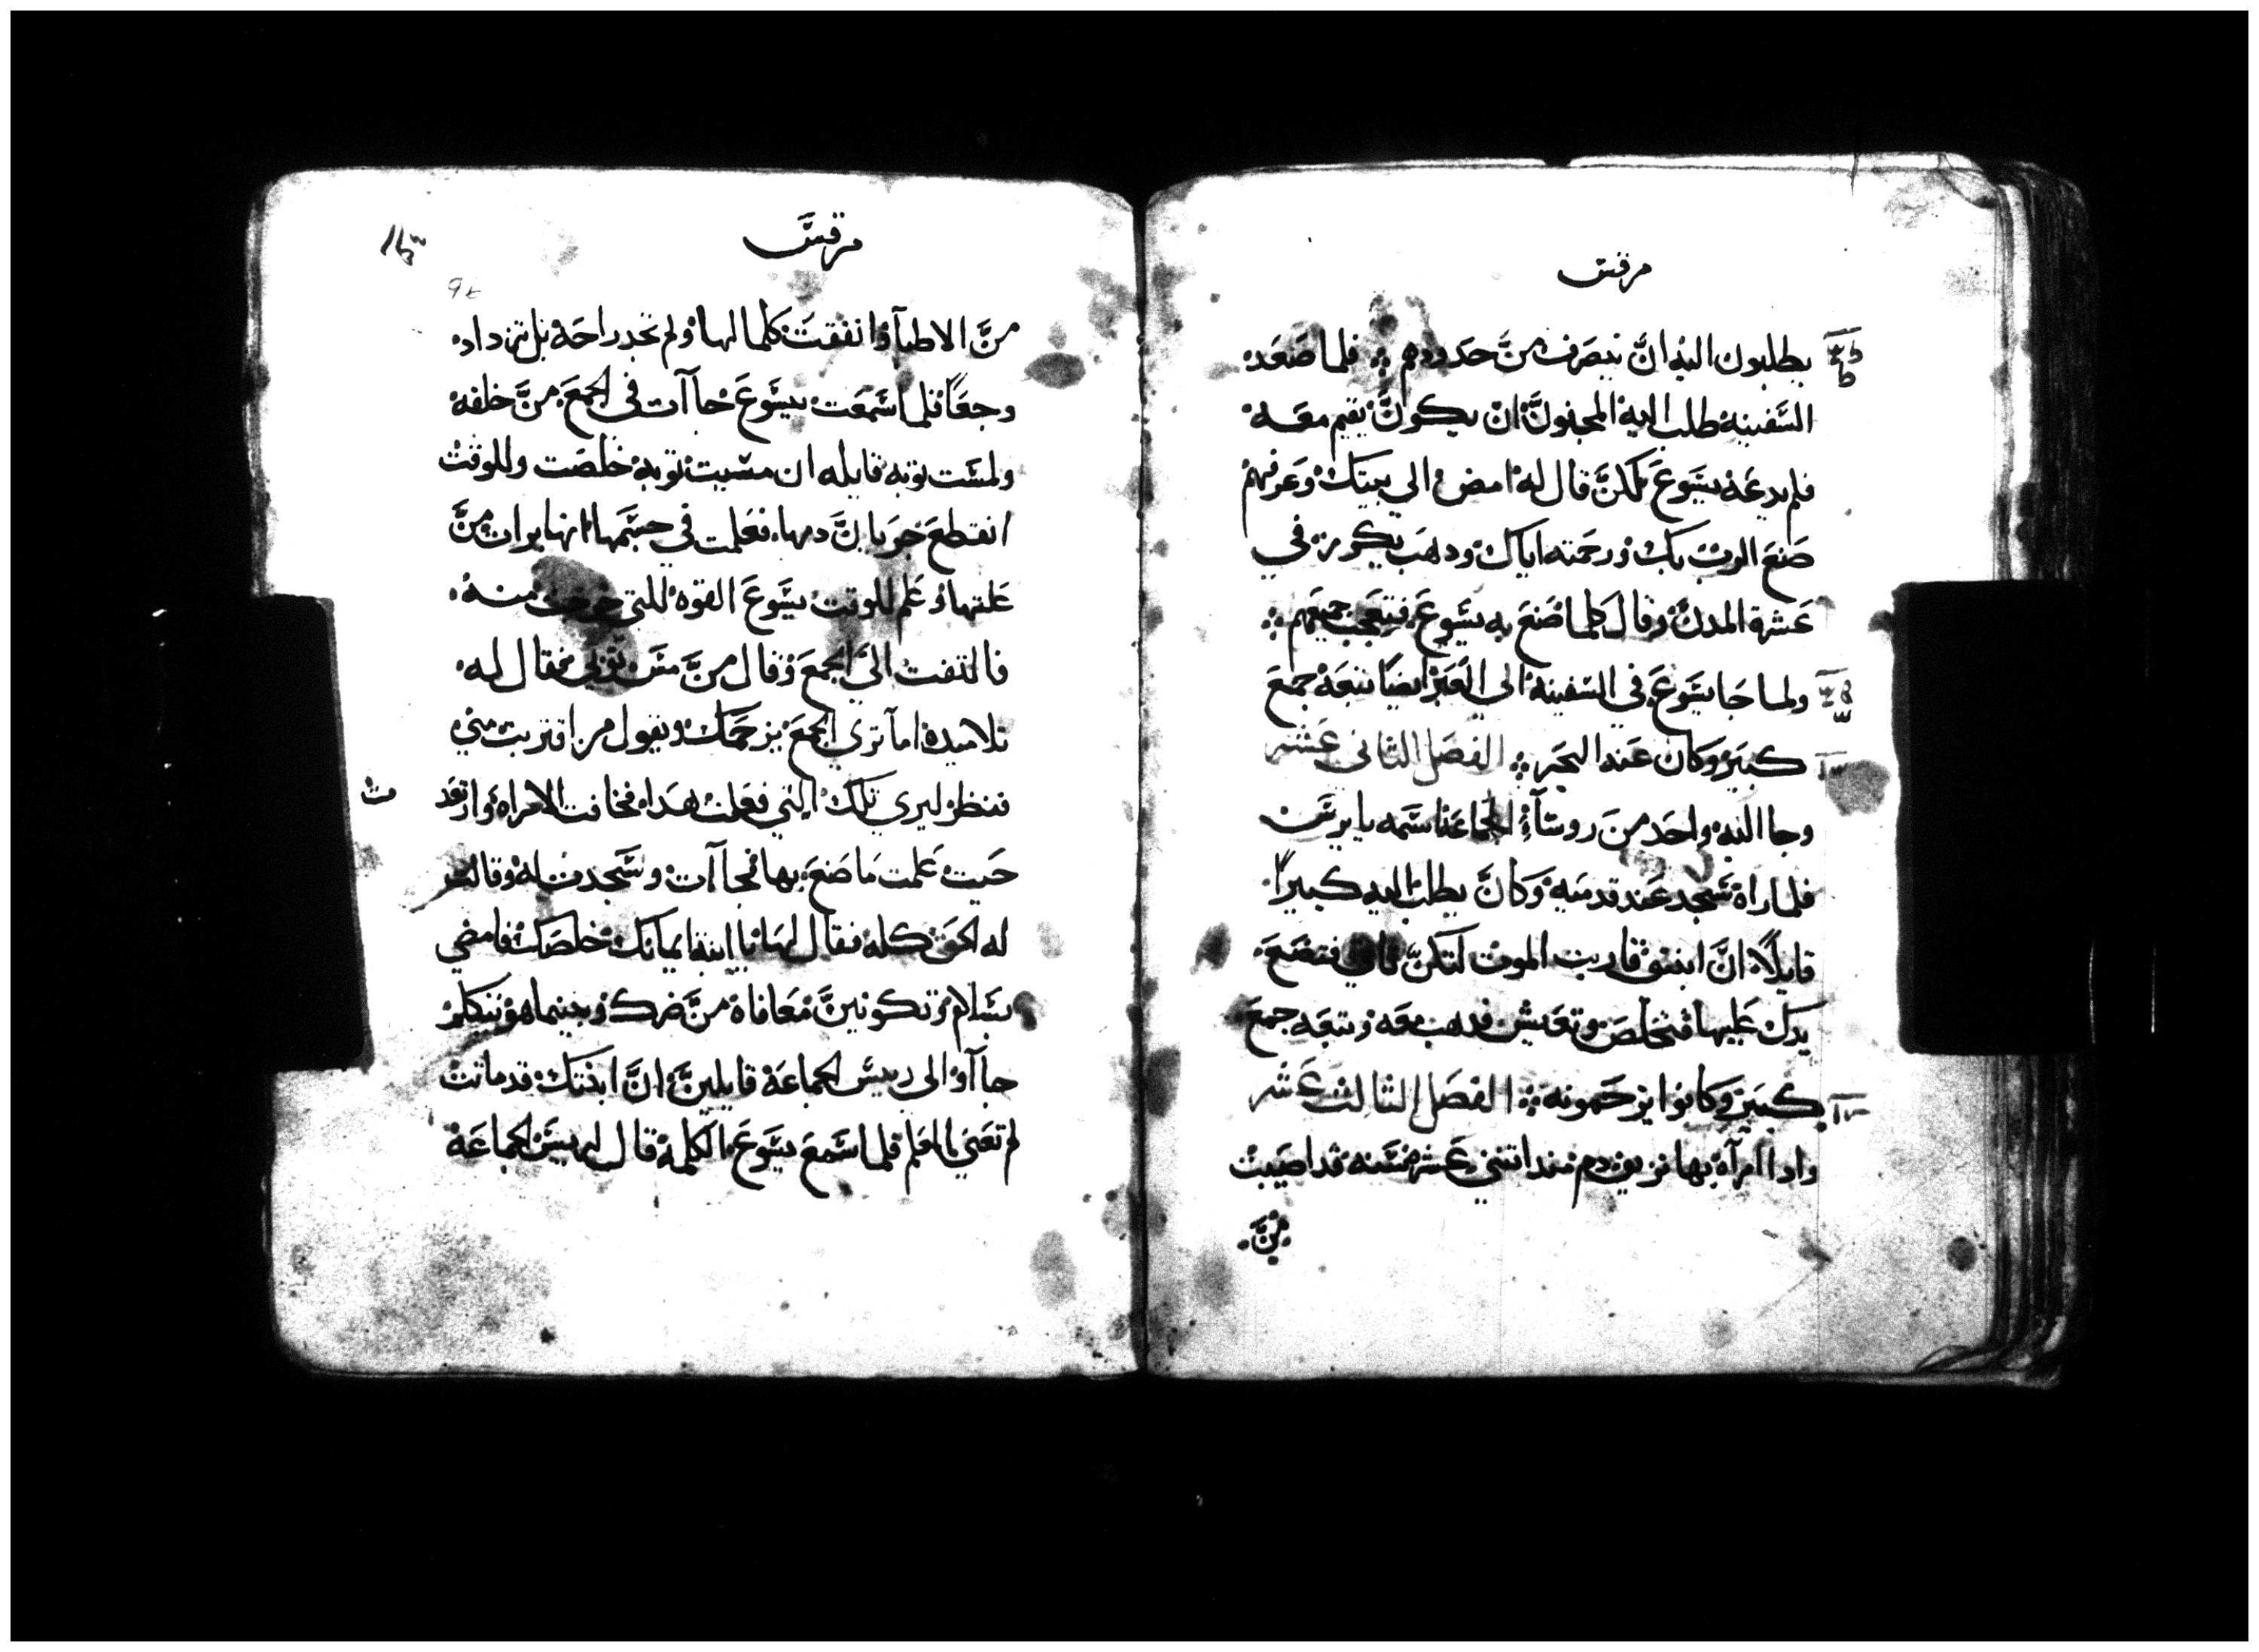 مرقس
يطلبون اليه ان ينصرف من حدودهم فلما صعد
السفينه طلب اليه المجنون ان يكون يقيم معه
فلم يدعه يسوع لكن قال له امض الي بيتك وعرفهم
صنع الرب بك ورحمته اياك ودهب يكرز في
عشرة المدن وقال كلما صنع به يسوع فتعجب جميعهم
ولما جا يسوع في السفينه الي العبر ايضا تبعه جمع
كبير وكان عند البحر الفصل الثاني عشر
وجا اليه واحد من روسآء الجماعة اسمه يايرس
فلما راه سجد عند قدميه وكان يطلب اليه كبيرًا
قايلاً ان ابنتي قاربت الموت لكن تاتي فتضع
يدك عليها فتخلص وتعيش فدهب معه وتبعه جمع
كبير وكانوا يزحمونه الفصل الثالث عشر
وادا امرآة بها نزيف دم مند اتني عشر سنه قد اصيبت
من
مرقس
من الاطبآ وانفقت كلما لها ولم تجد راحة بل تزداد
وجعًا فلما سمعت بيسوع جاآت في الجمع من خلفه
ولمست توبه قايله ان مسيت توبه خلصت وللوقت
انقطع جريان دمها فعلمت في جسمها انها برات من
علتها وعلم للوقت يسوع القوه اللتي خرجت منه
فالتفت الي الجمع وقال من مس توبي فقال له
تلاميده اما تري الجمع يزحمك وتقول من اقترب مني
فنظر ليري تلك التي فعلت هدا فخافت الامراه وارتعد
حيت علمت ما صنع بها فجاآت وسجدت له وقالت
له الحق كله فقال لها يا ابنة ايمانك خلصك فامضي
بسلام وتكونين معافاة من ضرك وبينما هو يتكلم
جاآوا الي رييس الجماعة قايلين ان ابنتك قد ماتت
لم تعني المعلم فلما سمع يسوع الكلمة قال لرييس الجماعة